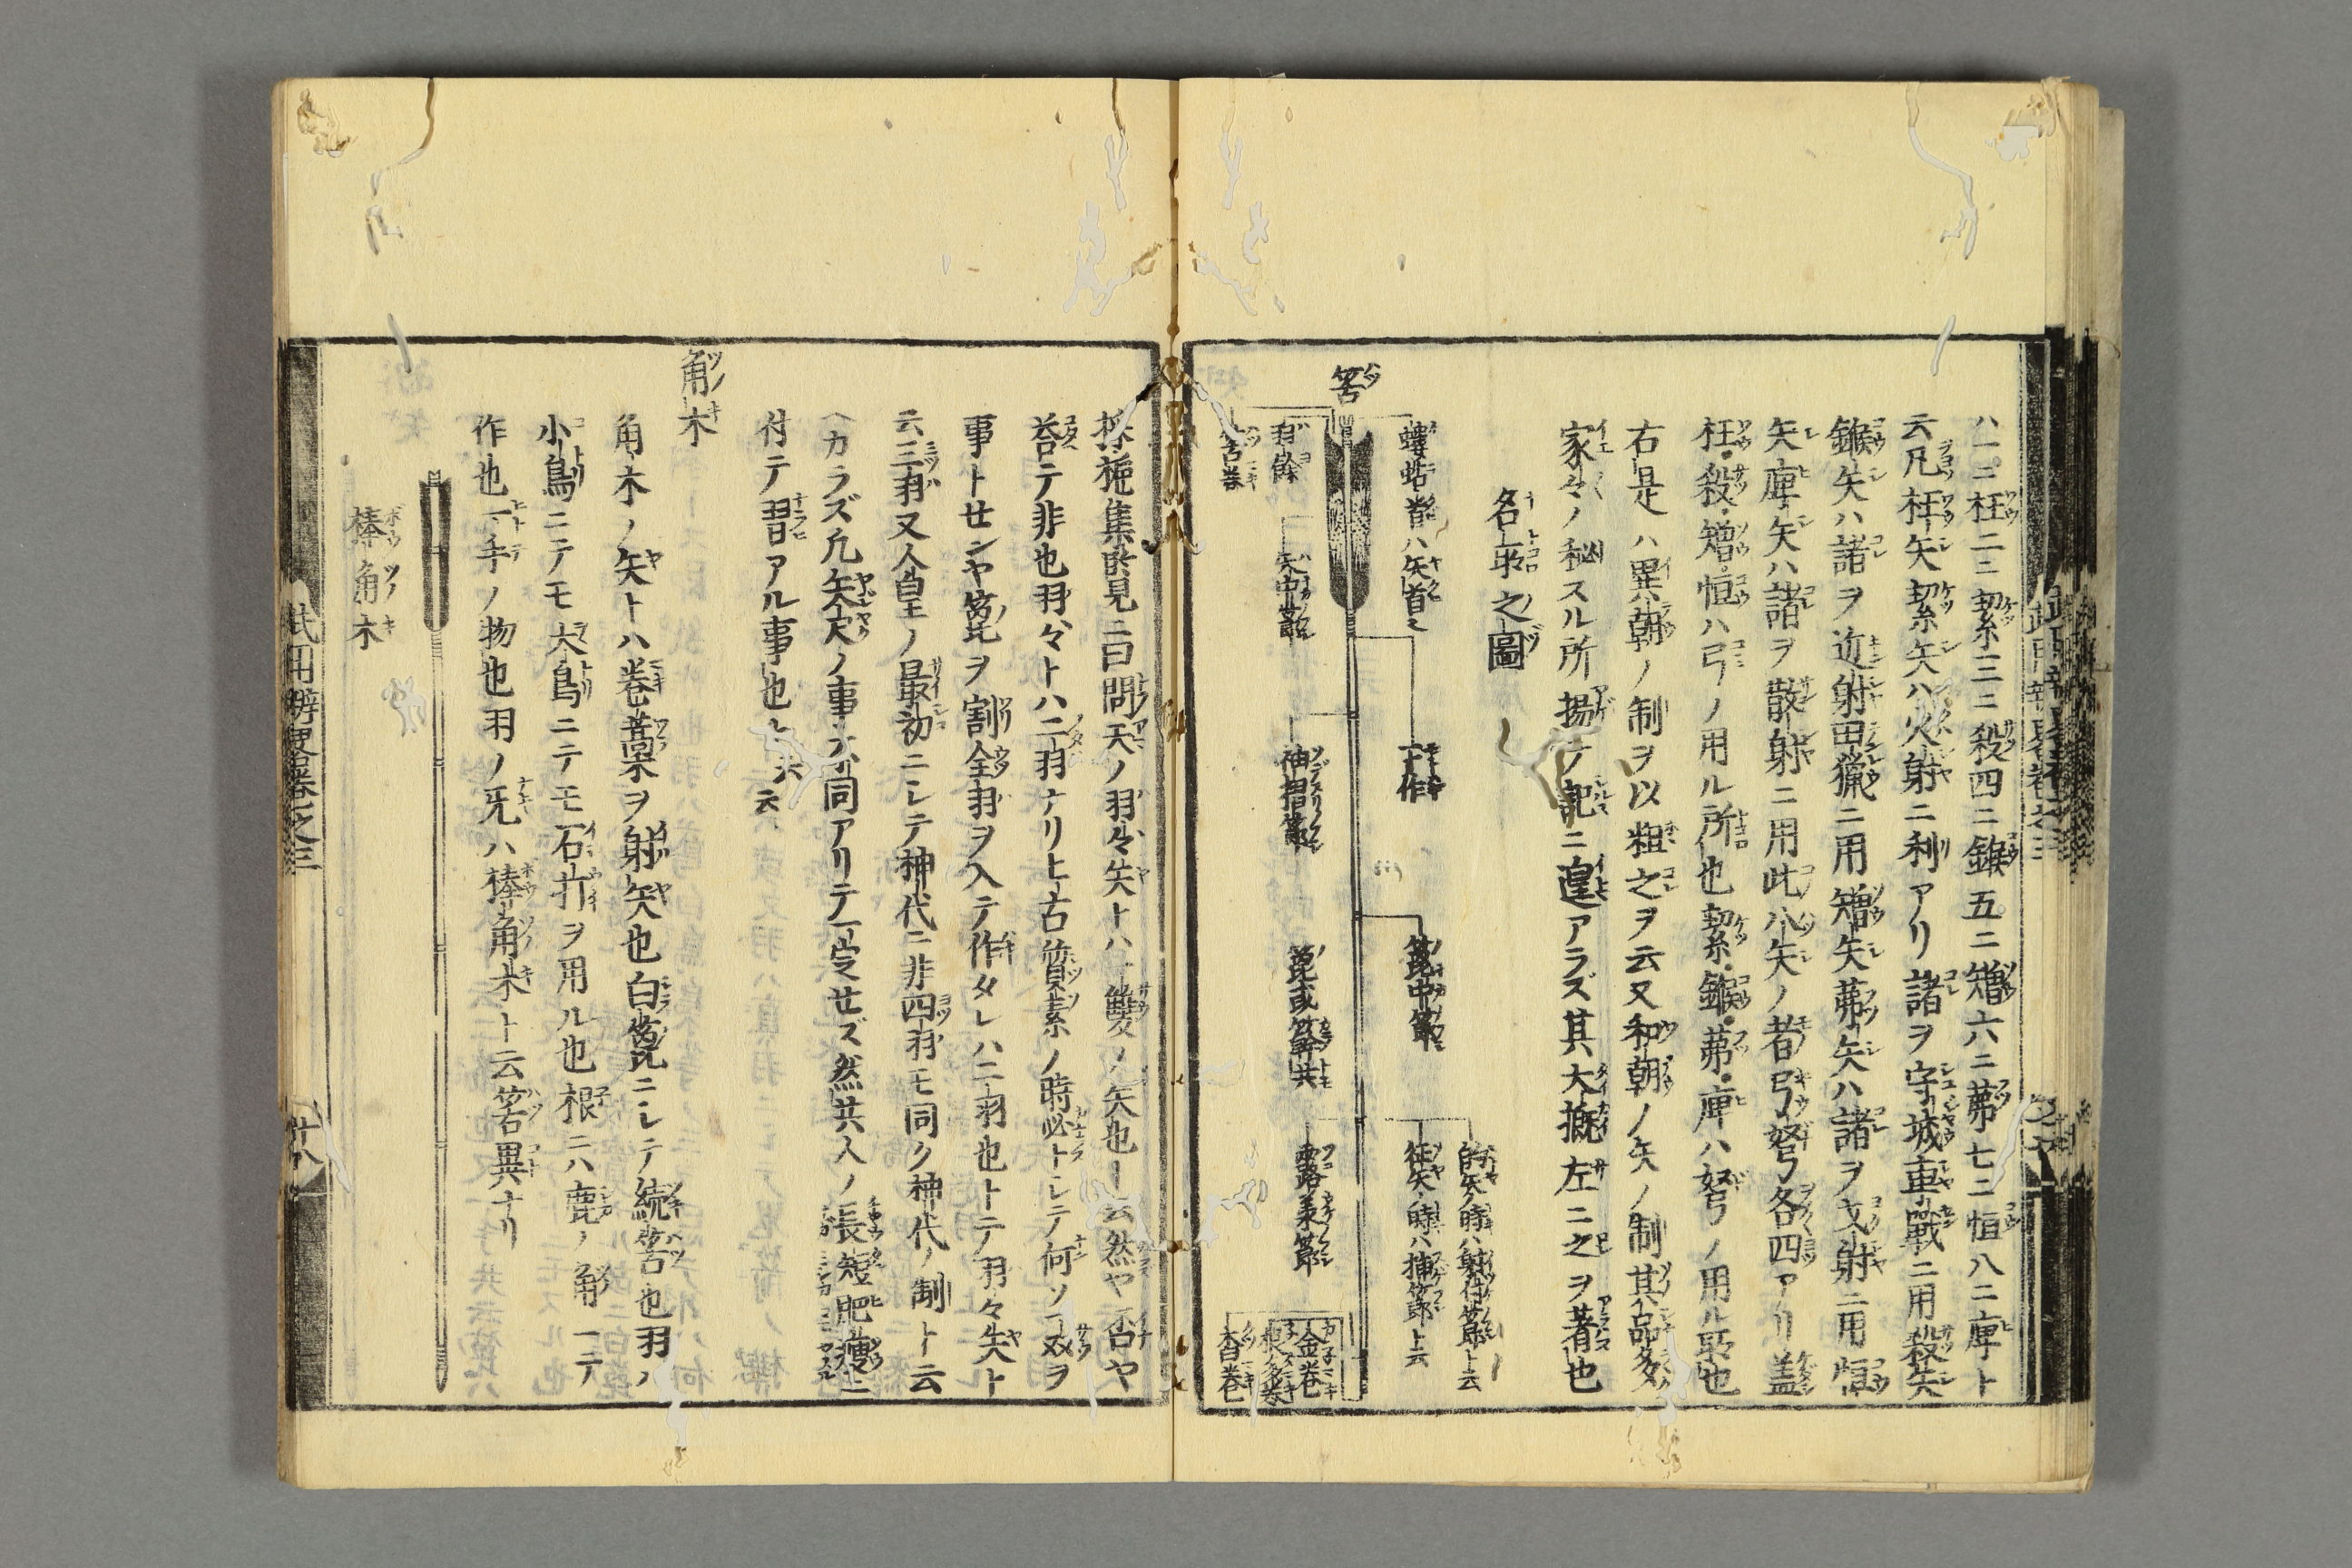 ハ一ニ枉二ニ絜三ニ殺四ニ鍭五ニ矰六ニ茀七ニ恒八ニ庳ト
云凡枉矢絜矢ハ火射ニ利アリ諸ヲ守城車戰ニ用殺矢
鍭矢ハ諸ヲ近射田獵ニ用矰矢茀矢ハ諸ヲ弋射ニ用恒
矢庳矢ハ諸ヲ散射ニ用此八矢ノ者弓弩各四アリ蓋
枉殺矰恒ハ弓ノ用ル所也絜鍭茀庳ハ弩ノ用ル所也
右是ハ異朝ノ制ヲ以粗之ヲ云又和朝ノ矢ノ制其品多
家々ノ秘スル所揚テ記ニ遑アラズ其大概左ニ之ヲ著也
名所之圖
筈
螻蛄首ハ矢首
羽作
箆中節
的矢ノ時ハ射付節ト云
征矢ノ時ハ捕節ト云
筈巻
矢中節
袖摺節
箆或簳共
金巻
根多巻
沓巻
採摭集 見ニ曰問天ノ羽々矢トハ一雙ノ矢也ト云然ヤ否ヤ
答テ非也羽々トハ二羽ナリ上古質素ノ時必トシテ何ソ一双ヲ
事トせンヤ箆ヲ割全羽ヲ入テ作タレハ二羽也トテ羽々矢ト
云三羽又人皇ノ最初ニシテ神代ニ非四羽モ同ク神代ノ制ト云
ヘカラズ凡矢 ノ事 同アリテ一定せズ然共人ノ長短肥瘦ニ
付テ習アル事也 云
角木
角木ノ矢トハ巻藁ヲ射矢也白箆ニシテ続筈也羽ハ
小鳥ニテモ大鳥ニテモ石打ヲ用ル也根ニハ鹿ノ角ニテ
作也一手ノ物也羽ノ旡ハ棒角木ト云筈異ナリ
棒角木
武用辨畧巻之三
廿八